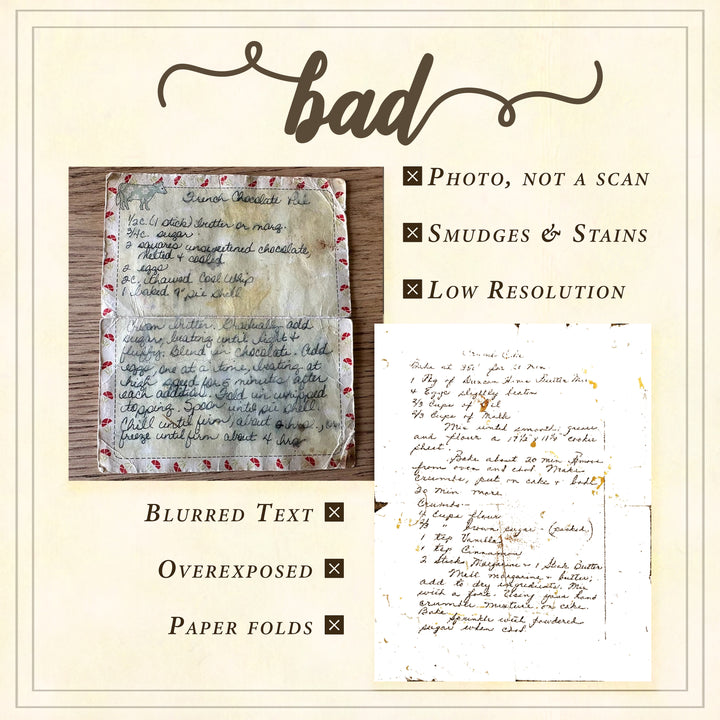 bad
PHOTO, NOT A SCAN
SMUDGES & STAINS
LOW RESOLUTION
French Chocolate Pie
1/2 c. (1 stick) butter or marg.
3/4 c. sugar
2 squares unsweetened chocolate,
melted & cooled
2 eggs
2 c. thawed Cool Whip
1 baked 9" pie shell
Cream butter. Gradually add
sugar, beating until light &
fluffy. Blend in chocolate. Add
eggs, one at a time, beating at
high speed for 5 minutes after
each addition. Fold in whipped
topping. Spoon into pie shell.
Chill until firm, about 2 hours, or
freeze until firm about 4 hrs
BLURRED TEXT
OVEREXPOSED
PAPER FOLDS
Crumb Cake
Bake at 350° for
1 Pkg of Duncan Hines Butter
4 Eggs slightly beaten
2/3 Cups of Oil
2/3 Cups of Milk
Mix until smooth. grease
and flour a 17 1/2 x 11 1/2 cookie
sheet.
Bake about 20 min Remove
from oven and cool. Make
Crumbs, put on cake & bake
20 min more
Crumbs-
4 Cups flour
2/3 " brown sugar - (packed)
1 tsp Vanilla
1 tsp Cinnamon
2 Sticks Margarine & 1 Stick Butter
Melt margarine & butter,
add to dry ingredients. Mix
with a fork. Using your hand
crumble mixture on cake.
Bake
Sprinkle with powdered
sugar when cool.